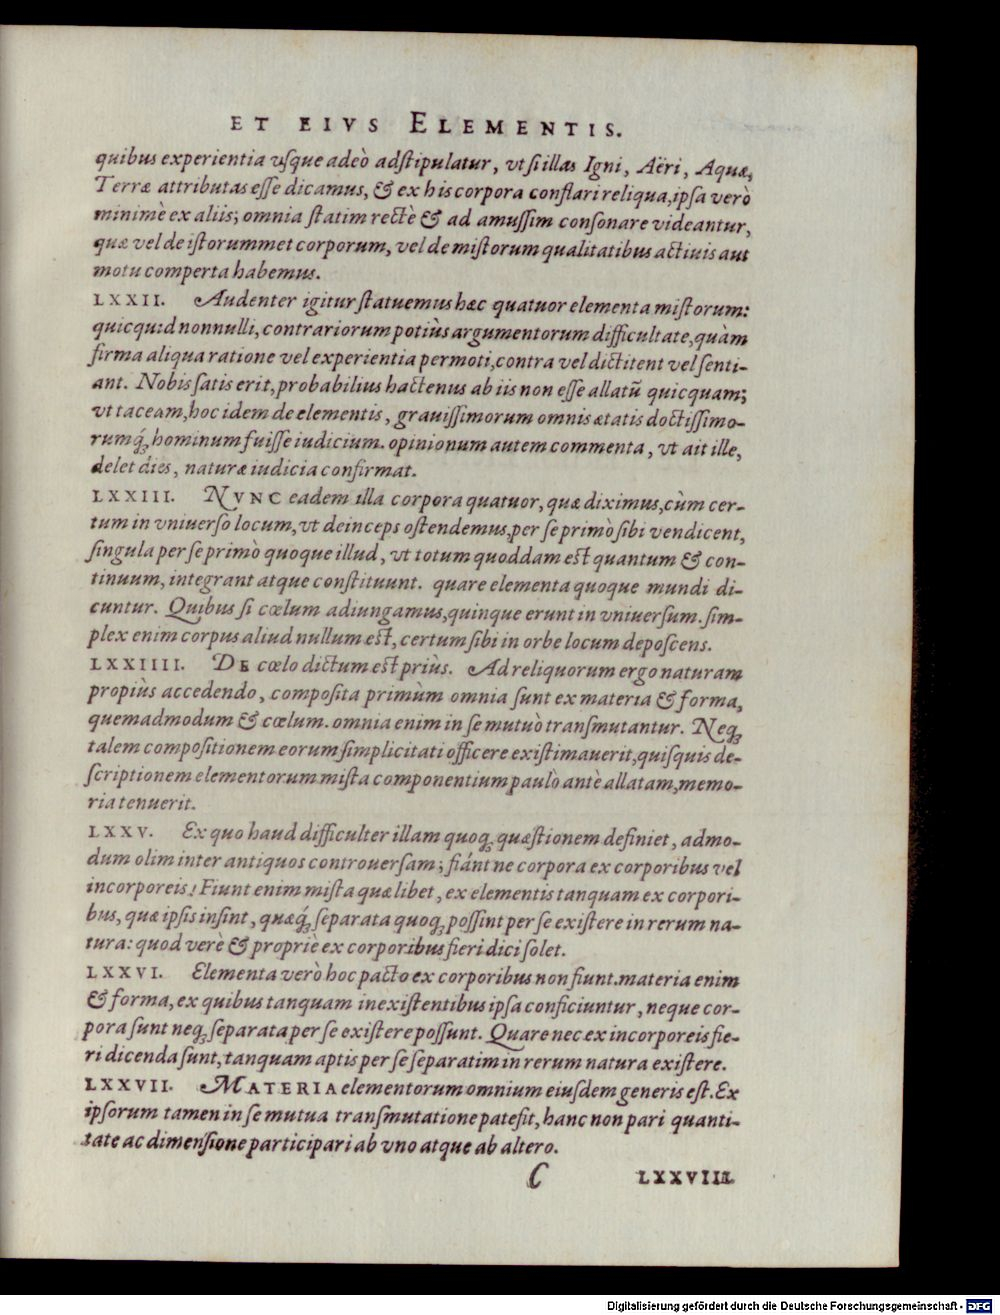 ET EIVS ELEMENTIS.
quibus experientia vſque adeò adſtipulatur, vt ſi illas Igni, Aëri, Aquæ,
Terræ attributas eſſe dicamus, & ex his corpora conflari reliqua, ipſa verò
minimè ex aliis; omnia ſtatim rectè & ad amuſſim conſonare videantur,
quæ vel de iſtorummet corporum, vel de miſtorum qualitatibus actiuis aut
motu comperta habemus.
LXXII. Audenter igitur ſtatuemus hæc quatuor elementa miſtorum:
quicquid nonnulli, contrariorum potiùs argumentorum difficultate, quàm
firma aliqua ratione vel experientia permoti, contra vel dictitent vel ſenti-
ant. Nobis ſatis erit, probabilius hactenus ab iis non eſſe allatũ quicquam;
vt taceam, hoc idem de elementis, grauiſſimorum omnis ætatis doctiſſimo-
rumq́ꝫ hominum fuiſſe iudicium. opinionum autem commenta, vt ait ille,
delet dies, naturæ iudicia confirmat.
LXXIII. NVNC eadem illa corpora quatuor, quæ diximus, cùm cer-
tum in vniuerſo locum, vt deinceps oſtendemus, per ſe primò ſibi vendicent,
ſingula per ſe primò quoque illud, vt totum quoddam eſt quantum & con-
tinuum, integrant atque conſtituunt. quare elementa quoque mundi di-
cuntur. Quibus ſi cœlum adiungamus, quinque erunt in vniuerſum. ſim-
plex enim corpus aliud nullum eſt, certum ſibi in orbe locum depoſcens.
LXXIIII. DE cœlo dictum eſt priùs. Ad reliquorum ergo naturam
propiùs accedendo, compoſita primùm omnia ſunt ex materia & forma,
quemadmodum & cœlum. omnia enim in ſe mutuò tranſmutantur. Neqꝫ
talem compoſitionem eorum ſimplicitati officere exiſtimauerit, quiſquis de-
ſcriptionem elementorum miſta componentium paulò antè allatam, memo-
ria tenuerit.
LXXV. Ex quo haud difficulter illam quoqꝫ quæſtionem definiet, admo-
dum olim inter antiquos controuerſam; fiánt ne corpora ex corporibus vel
incorporeis? Fiunt enim miſta quælibet, ex elementis tanquam ex corpori-
bus, quæ ipſis inſint, quæq́ꝫ ſeparata quoqꝫ poſſint per ſe exiſtere in rerum na-
tura: quod verè & propriè ex corporibus fieri dici ſolet.
LXXVI. Elementa verò hoc pacto ex corporibus non fiunt. materia enim
& forma, ex quibus tanquam inexiſtentibus ipſa conficiuntur, neque cor-
pora ſunt neqꝫ ſeparata per ſe exiſtere poſſunt. Quare nec ex incorporeis fie-
ri dicenda ſunt, tanquam aptis per ſe ſeparatim in rerum natura exiſtere.
LXXVII. MATERIA elementorum omnium eiuſdem generis eſt. Ex
ipſorum tamen in ſe mutua tranſmutatione pateſit, hanc non pari quanti-
tate ac dimenſione participari ab vno atque ab altero.
C LXXVIII.
Digitalisierung gefördert durch die Deutsche Forschungsgemeinschaft - DFG